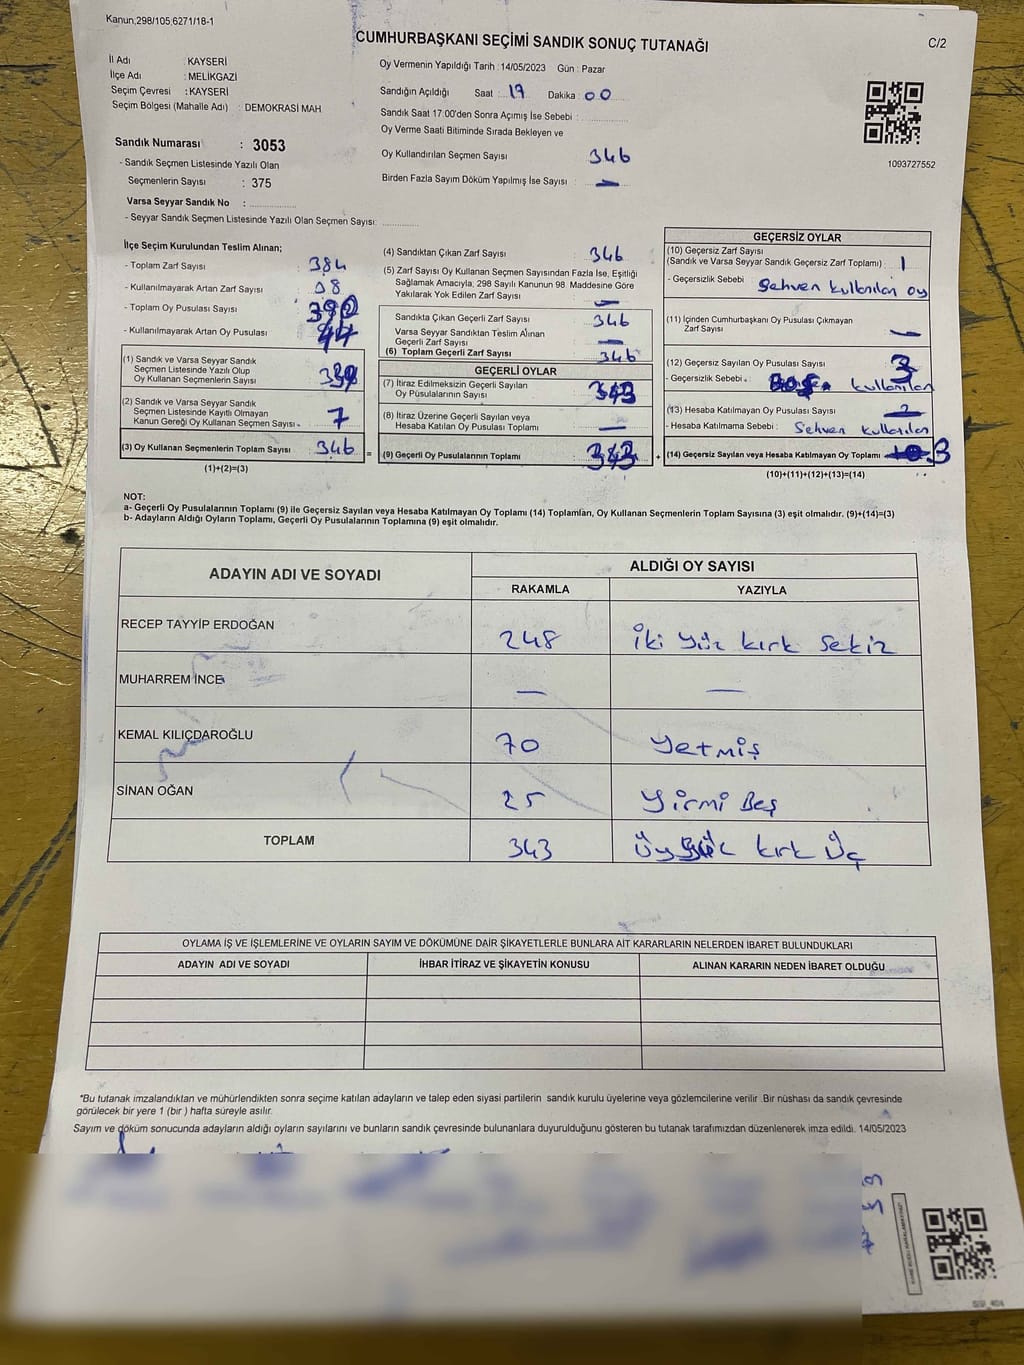 Kanun,298/105;6271/18-1
CUMHURBAŞKANI SEÇİMİ SANDIK SONUÇ TUTANAĞI
C/2
İl Adı : KAYSERİ
İlçe Adı : MELİKGAZİ
Seçim Çevresi : KAYSERİ
Seçim Bölgesi (Mahalle Adı) : DEMOKRASİ MAH
Sandık Numarası : 3053
- Sandık Seçmen Listesinde Yazılı Olan
Seçmenlerin Sayısı : 375
Varsa Seyyar Sandık No :
- Seyyar Sandık Seçmen Listesinde Yazılı Olan Seçmen Sayısı:
Oy Vermenin Yapıldığı Tarih : 14/05/2023 Gün : Pazar
Sandığın Açıldığı Saat : 17 Dakika : 00
Sandık Saat 17:00'den Sonra Açımış İse Sebebi :
Oy Verme Saati Bitiminde Sırada Bekleyen ve
Oy Kullandırılan Seçmen Sayısı 346
Birden Fazla Sayım Döküm Yapılmış İse Sayısı : —
1093727552
İlçe Seçim Kurulundan Teslim Alınan;
- Toplam Zarf Sayısı : 384
- Kullanılmayarak Artan Zarf Sayısı : 38
- Toplam Oy Pusulası Sayısı
- Kullanılmayarak Artan Oy Pusulası : 44
(1) Sandık ve Varsa Seyyar Sandık
Seçmen Listesinde Yazılı Olup
Oy Kullanan Seçmenlerin Sayısı : 339
(2) Sandık ve Varsa Seyyar Sandık
Seçmen Listesinde Kayıtlı Olmayan
Kanun Gereği Oy Kullanan Seçmen Sayısı 7
(3) Oy Kullanan Seçmenlerin Toplam Sayısı : 346
(1)+(2)=(3)
(4) Sandıktan Çıkan Zarf Sayısı 346
(5) Zarf Sayısı Oy Kullanan Seçmen Sayısından Fazla İse, Eşitliği
Sağlamak Amacıyla, 298 Sayılı Kanunun 98. Maddesine Göre
Yakılarak Yok Edilen Zarf Sayısı —
Sandıkta Çıkan Geçerli Zarf Sayısı 346
Varsa Seyyar Sandıktan Teslim Alınan
Geçerli Zarf Sayısı —
(6) Toplam Geçerli Zarf Sayısı 346
GEÇERLİ OYLAR
(7) İtiraz Edilmeksizin Geçerli Sayılan
Oy Pusulalarının Sayısı 343
(8) İtiraz Üzerine Geçerli Sayılan veya
Hesaba Katılan Oy Pusulası Toplamı —
= (9) Geçerli Oy Pusulalarının Toplamı 343 +
GEÇERSİZ OYLAR
(10) Geçersiz Zarf Sayısı
(Sandık ve Varsa Seyyar Sandık Geçersiz Zarf Toplamı) : 1
- Geçersizlik Sebebi : Sehven kullanılan oy
(11) İçinden Cumhurbaşkanı Oy Pusulası Çıkmayan
Zarf Sayısı —
(12) Geçersiz Sayılan Oy Pusulası Sayısı : 3
- Geçersizlik Sebebi : kullanılan
(13) Hesaba Katılmayan Oy Pusulası Sayısı :
- Hesaba Katılmama Sebebi : Sehven kullanılan
(14) Geçersiz Sayılan veya Hesaba Katılmayan Oy Toplamı 3
(10)+(11)+(12)+(13)=(14)
NOT:
a- Geçerli Oy Pusulalarının Toplamı (9) ile Geçersiz Sayılan veya Hesaba Katılmayan Oy Toplamı (14) Toplamları, Oy Kullanan Seçmenlerin Toplam Sayısına (3) eşit olmalıdır. (9)+(14)=(3)
b- Adayların Aldığı Oyların Toplamı, Geçerli Oy Pusulalarının Toplamına (9) eşit olmalıdır.
ADAYIN ADI VE SOYADI
ALDIĞI OY SAYISI
RAKAMLA YAZIYLA
RECEP TAYYİP ERDOĞAN 248 İki yüz kırk sekiz
MUHARREM İNCE — —
KEMAL KILIÇDAROĞLU 70 Yetmiş
SİNAN OĞAN 25 Yirmi Beş
TOPLAM 343 kırk Üç
OYLAMA İŞ VE İŞLEMLERİNE VE OYLARIN SAYIM VE DÖKÜMÜNE DAİR ŞİKAYETLERLE BUNLARA AİT KARARLARIN NELERDEN İBARET BULUNDUKLARI
ADAYIN ADI VE SOYADI İHBAR İTİRAZ VE ŞİKAYETİN KONUSU ALINAN KARARIN NEDEN İBARET OLDUĞU
*Bu tutanak imzalandıktan ve mühürlendikten sonra seçime katılan adayların ve talep eden siyasi partilerin sandık kurulu üyelerine veya gözlemcilerine verilir .Bir nüshası da sandık çevresinde
görülecek bir yere 1 (bir ) hafta süreyle asılır.
Sayım ve döküm sonucunda adayların aldığı oyların sayılarını ve bunların sandık çevresinde bulunanlara duyurulduğunu gösteren bu tutanak tarafımızdan düzenlenerek imza edildi. 14/05/2023